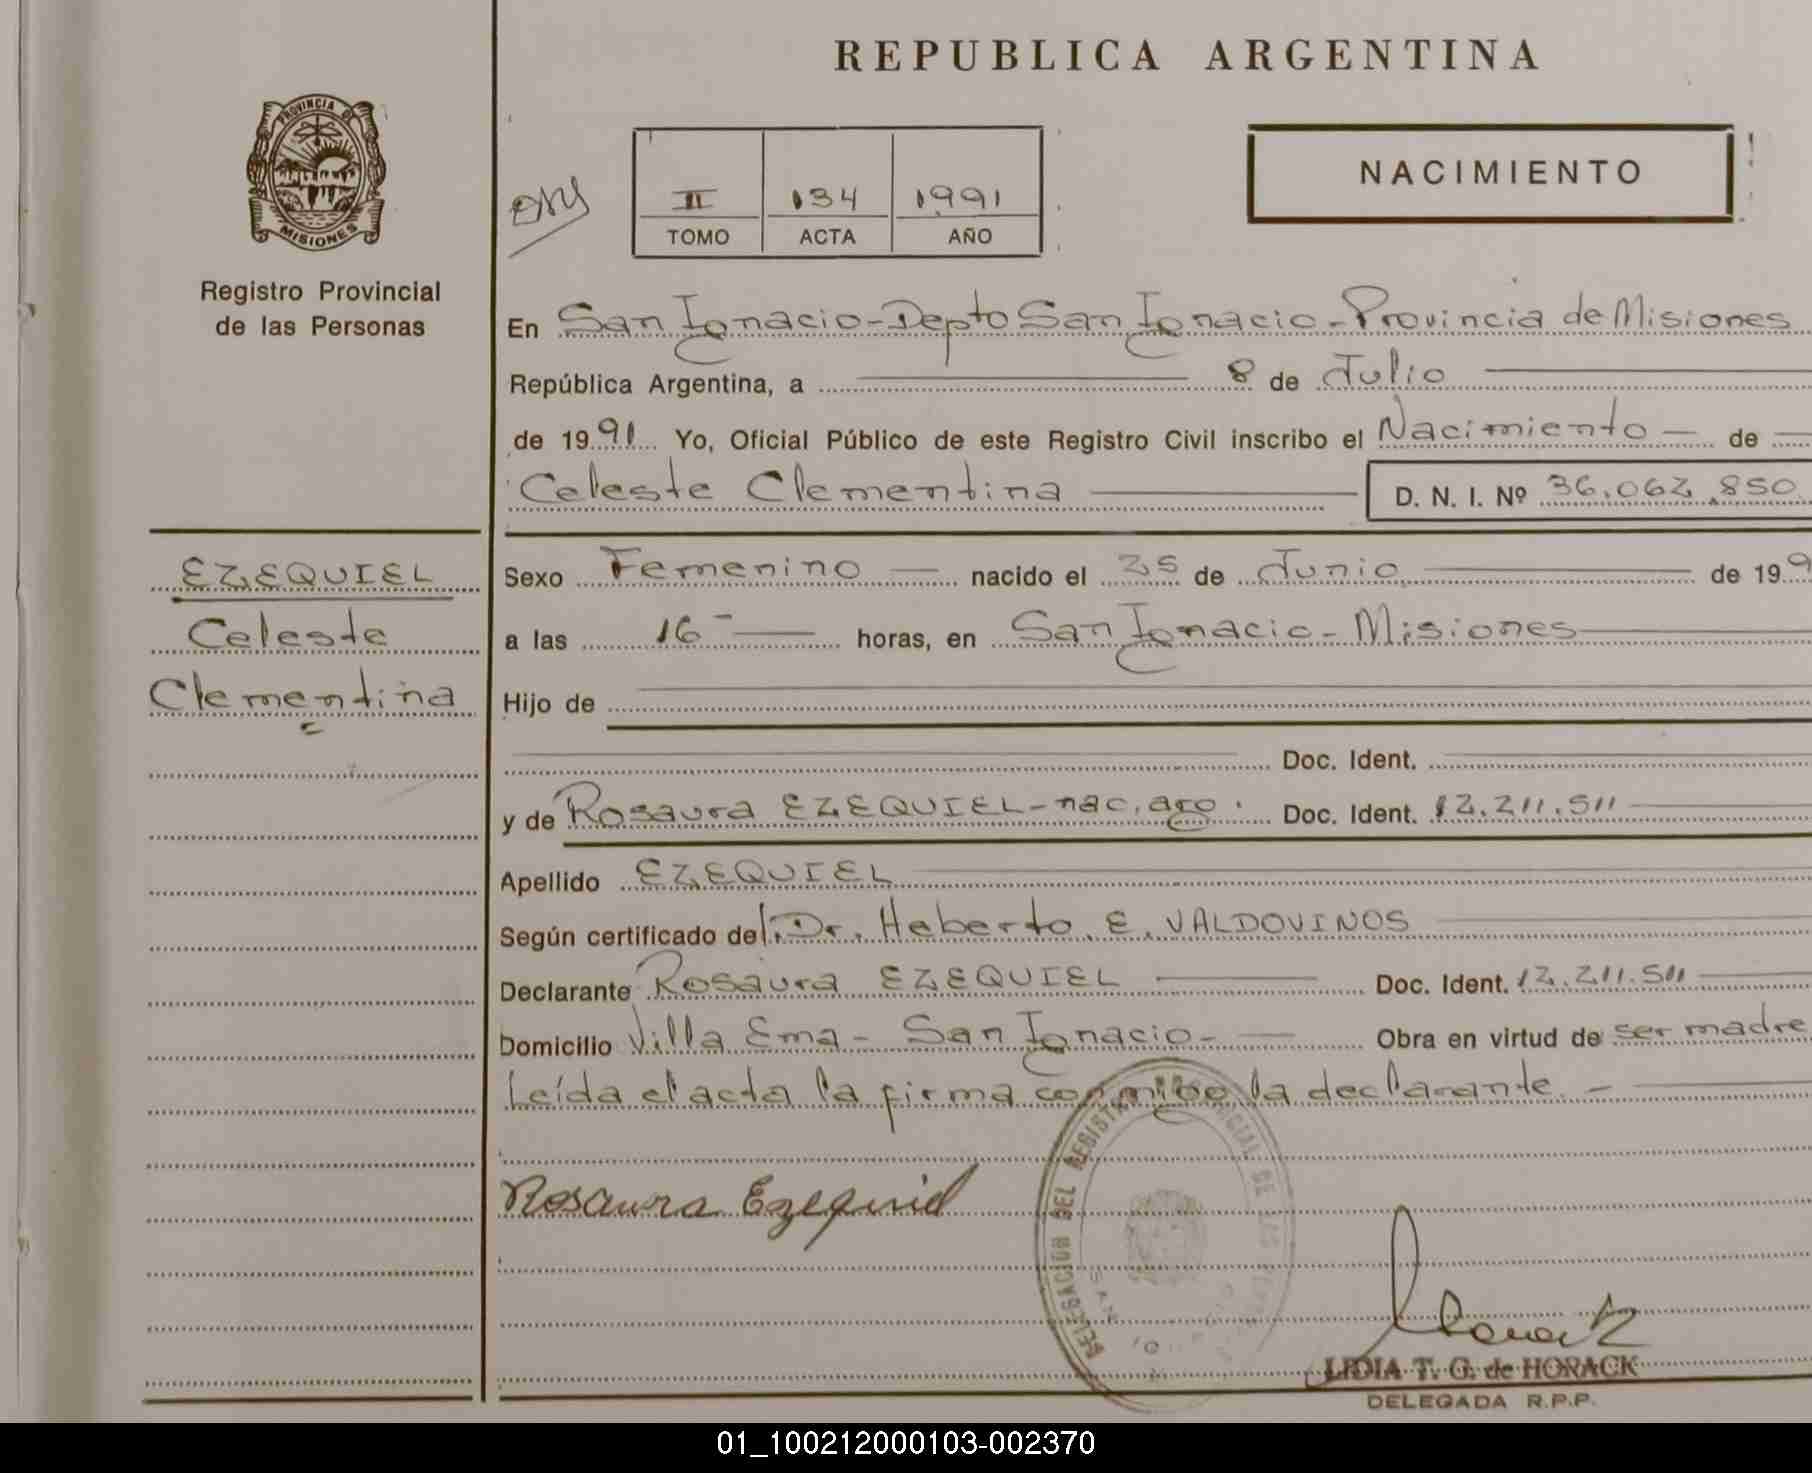 REPUBLICA ARGENTINA
PROVINCIA DE
MISIONES
Registro Provincial
de las Personas
II 134 1991
TOMO ACTA AÑO
NACIMIENTO
En San Ignacio-Depto San Ignacio-Provincia de Misiones
República Argentina, a 8 de Julio
de 1991 Yo, Oficial Público de este Registro Civil inscribo el Nacimiento de
Celeste Clementina D. N. I. Nº 36.062.850
EZEQUIEL
Celeste
Clementina
Sexo Femenino nacido el 25 de Junio de 199
a las 16 horas, en San Ignacio-Misiones
Hijo de
Doc. Ident.
y de Rosaura EZEQUIEL-nac. arg. Doc. Ident. 12.211.511
Apellido EZEQUIEL
Según certificado del Dr. Heberto E. VALDOVINOS
Declarante Rosaura EZEQUIEL Doc. Ident. 12.211.511
Domicilio Villa Ema- San Ignacio- Obra en virtud de ser madre
Leída el acta la firma conmigo la declarante.-
Rosaura Ezequiel
DELEGACION DEL REGISTRO
LIDIA T. G. de HORACK
DELEGADA R.P.P.
01_100212000103-002370